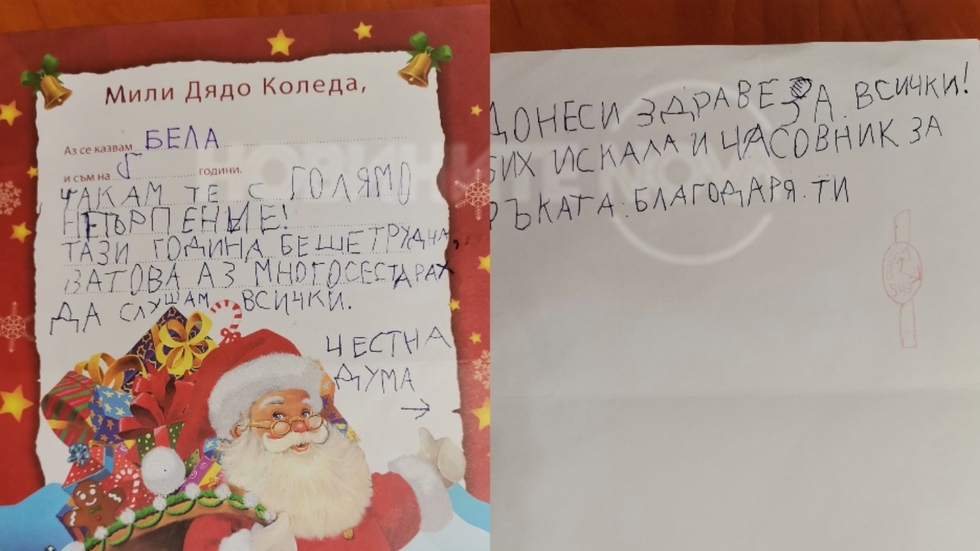 Мили Дядо Коледа,
Аз се казвам БЕЛА
и съм на 5 години.
ЧАКАМ ТЕ С ГОЛЯМО
НЕТЪРПЕНИЕ!
ТАЗИ ГОДИНА БЕШЕ ТРУДНА,
ЗАТОВА АЗ МНОГОСЕСТАРАХ
ДА СЛУШАМ ВСИЧКИ.
ЧЕСТНА
ДУМА
→
ДОНЕСИ ЗДРАВЕ ЗА ВСИЧКИ!
БИХ ИСКАЛА И ЧАСОВНИК ЗА
РЪКАТА. БЛАГОДАРЯ. ТИ
НОВИНИТЕ NOVA